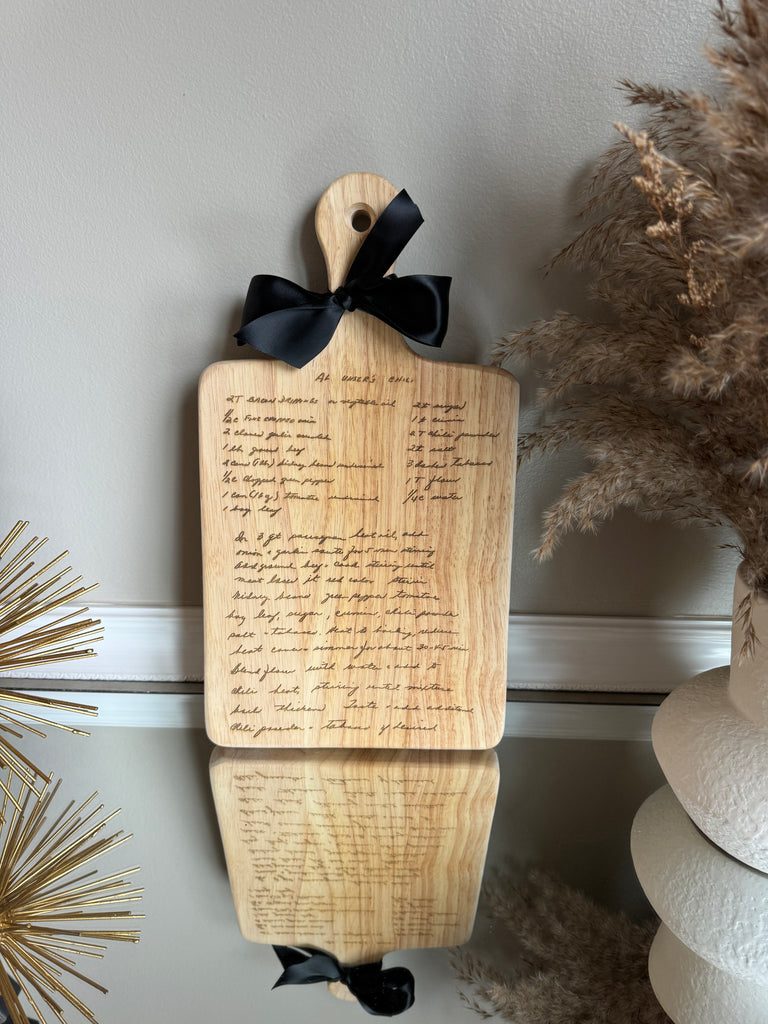 AL UNSER'S CHILI
2T BACON DRIPPINGS or vegetable oil
1/2c FINE CHOPPED onion
2 cloves garlic minced
1 lb ground beef
2 cans (1lb) kidney beans undrained
1/2c chopped green pepper
1 can (16 oz) tomatoes undrained
1 bay leaf
2t sugar
1 t cumin
2T chili powder
2t salt
3 dashes Tabasco
1 T flour
1/4c water
In 3 qt saucepan heat oil, add
onion & garlic saute for 5 min stirring
add ground beef & cook stirring until
meat loses its red color stir in
kidney beans green pepper tomatoes
bay leaf, sugar, cumin, chili powder
salt & tabasco. Heat to boiling, reduce
heat cover & simmer for about 30-45 min
Blend flour with water & add to
chili heat, stirring until mixture
boils thickens Taste & add additional
chili powder & tabasco if desired